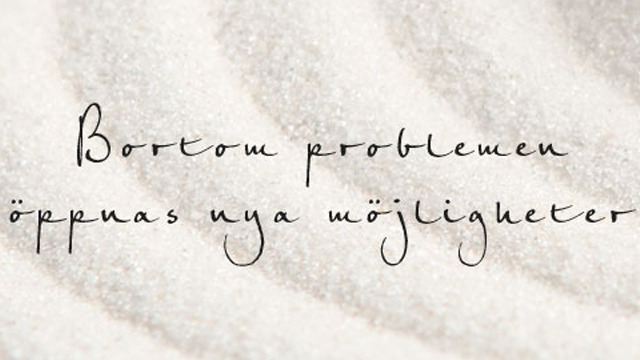 Bortom problemen
öppnas nya möjligheter